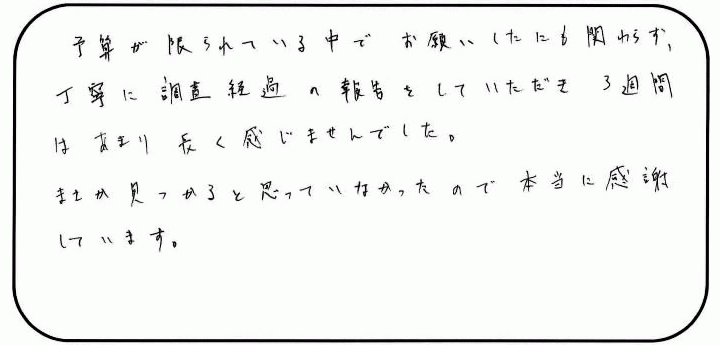 予算が限られている中でお願いしたにも関わらず、
丁寧に調査経過の報告をしていただき3週間
はあまり長く感じませんでした。
まさか見つかると思っていなかったので本当に感謝
しています。